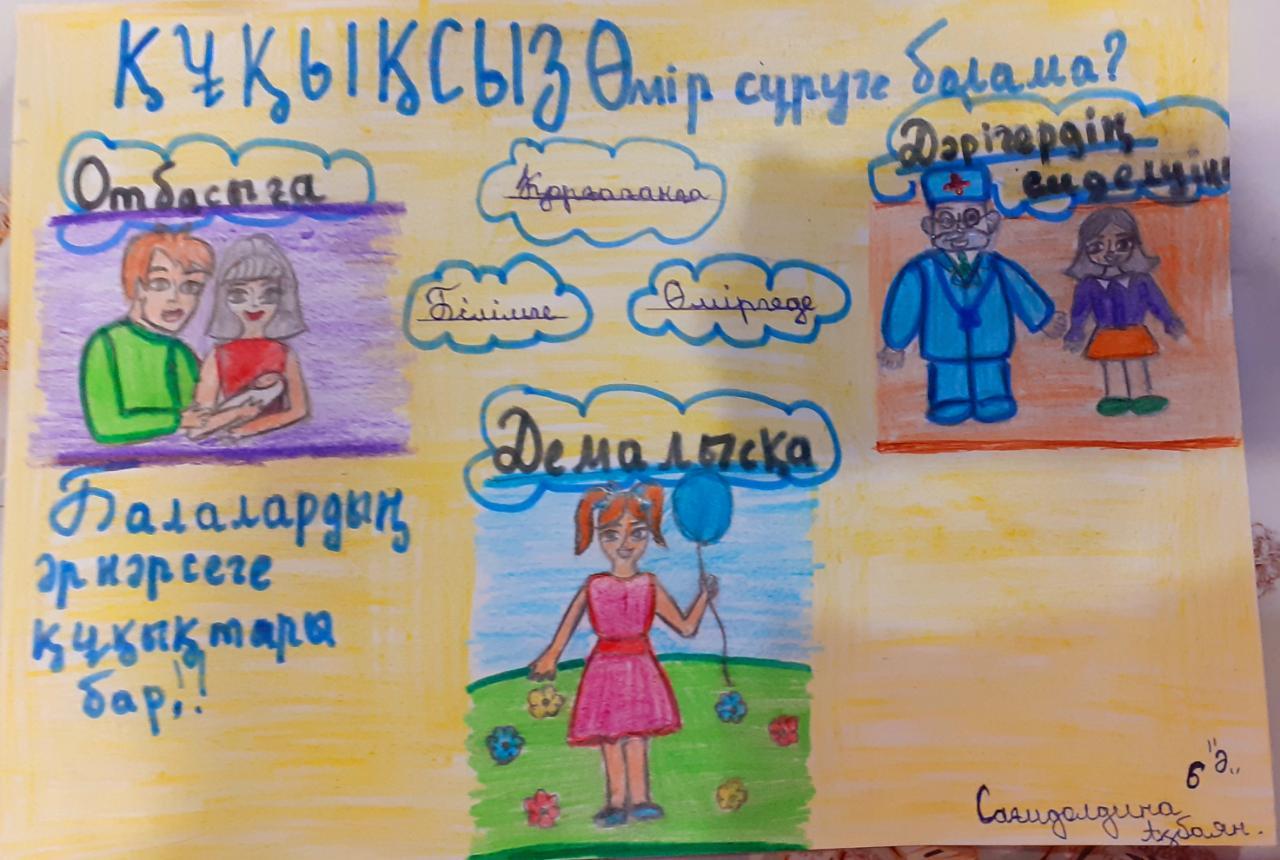 ҚҰҚЫҚСЫЗ Өмір сүруге болама?
Отбасыға
Қорғағанға
Білімге
Өмірге де
Дәрігердің
емделуіне
Демалысқа
Балалардың
әрнәрсеге
құқықтары
бар!!
6 "Ә"
Сағидолдина
Ақбаян.